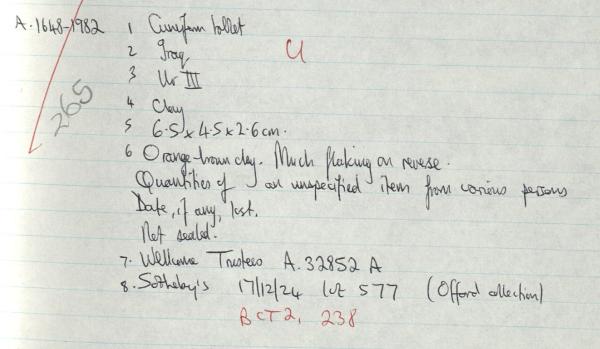 A.1648-1982 1 Cuneiform tablet
2 Iraq U
3 Ur III
265
4 Clay
5 6.5 x 4.5 x 2.6 cm.
6 Orange-brown clay. Much flaking on reverse.
Quantities of an unspecified item from various persons
Date, if any, lost.
Not sealed.
7. Wellcome Trustees A.32852 A
8. Sotheby's 17/12/24 lot 577 (Offord collection)
BCT 2, 238